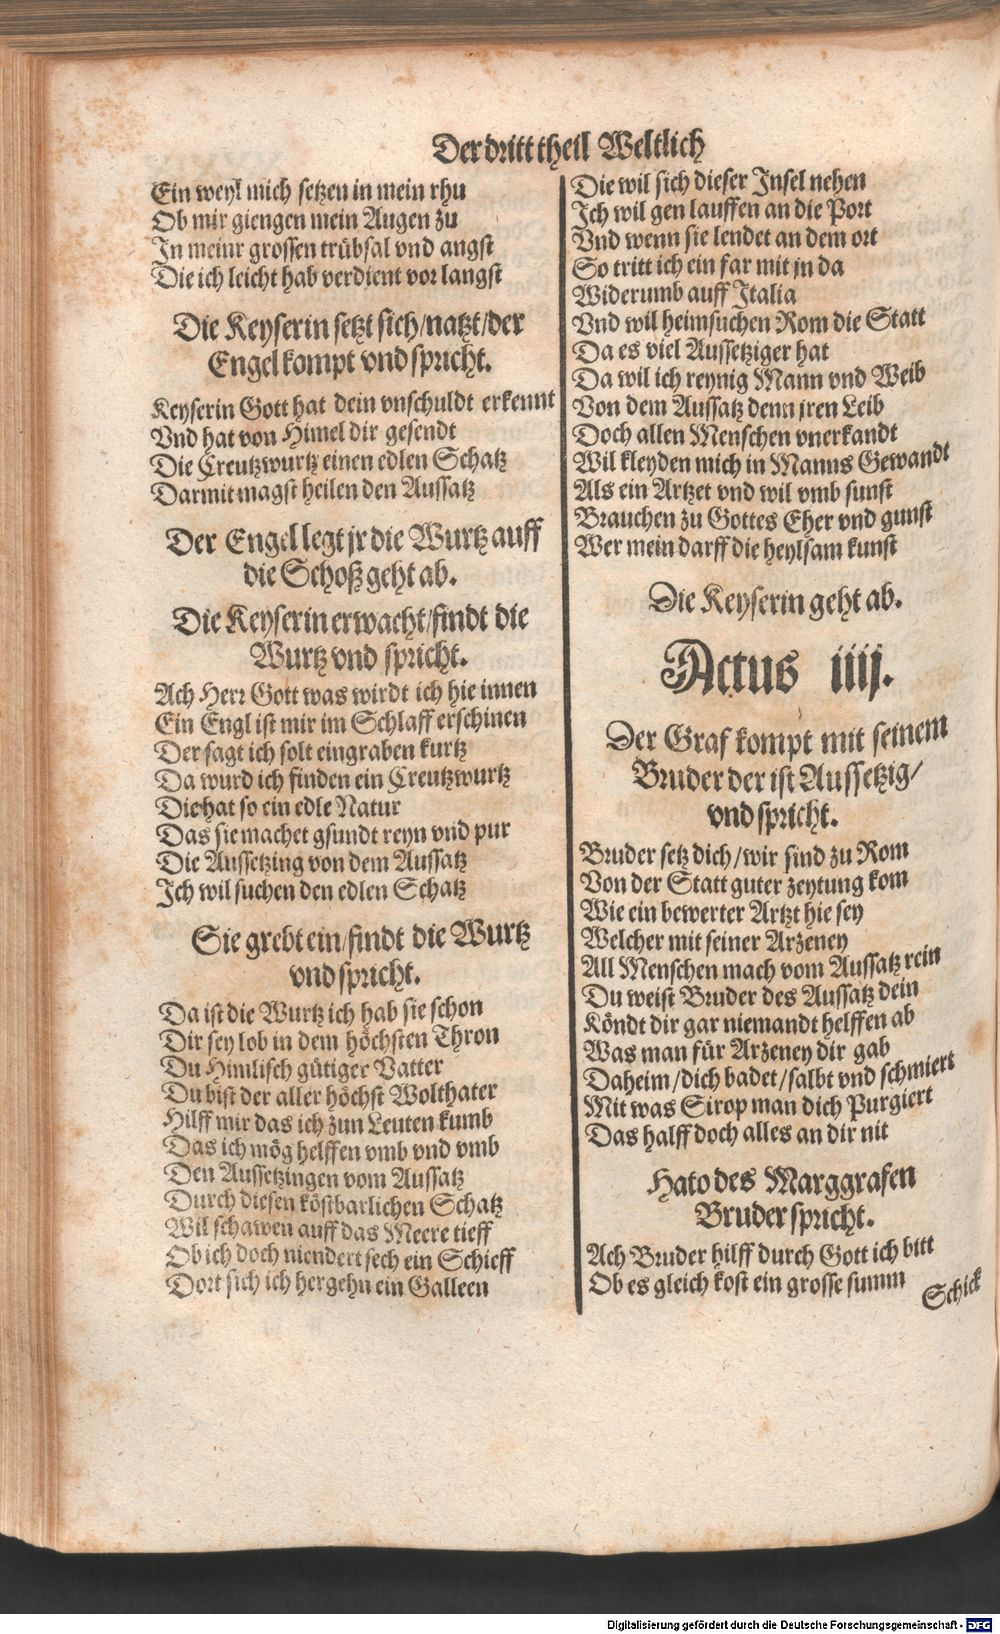 Der dritt theil Weltlich
Ein weyl mich setzen in mein rhu
Ob mir giengen mein Augen zu
In meinr grossen trübsal vnd angst
Die ich leicht hab verdient vor langst
Die Keyserin setzt sich/natzt/der
Engel kompt vnd spricht.
Keyserin Gott hat dein vnschuldt erkennt
Vnd hat von Himel dir gesendt
Die Creutzwurtz einen edlen Schatz
Darmit magst heilen den Aussatz
Der Engel legt jr die Wurtz auff
die Schoß geht ab.
Die Keyserin erwacht/findt die
Wurtz vnd spricht.
Ach Herr Gott was wirdt ich hie innen
Ein Engl ist mir im Schlaff erschinen
Der sagt ich solt eingraben kurtz
Da wurd ich finden ein Creutzwurtz
Die hat so ein edle Natur
Das sie machet gsundt reyn vnd pur
Die Aussetzing von dem Aussatz
Ich wil suchen den edlen Schatz
Sie grebt ein/findt die Wurtz
vnd spricht.
Da ist die Wurtz ich hab sie schon
Dir sey lob in dem höchsten Thron
Du Himlisch gütiger Vatter
Du bist der aller höchst Wolthater
Hilff mir das ich zun Leuten kumb
Das ich mög helffen vmb vnd vmb
Den Aussetzingen vom Aussatz
Durch diesen köstbarlichen Schatz
Wil schawen auff das Meere tieff
Ob ich doch niendert sech ein Schieff
Dort sich ich hergehn ein Galleen
Die wil sich dieser Insel nehen
Ich wil gen lauffen an die Port
Vnd wenn sie lendet an dem ort
So tritt ich ein far mit jn da
Widerumb auff Italia
Vnd wil heimsuchen Rom die Statt
Da es viel Aussetziger hat
Da wil ich reynig Mann vnd Weib
Von dem Aussatz denn jren Leib
Doch allen Menschen vnerkandt
Wil kleyden mich in Manns Gewandt
Als ein Artzet vnd wil vmb sunst
Brauchen zu Gottes Eher vnd gunst
Wer mein darff die heylsam kunst
Die Keyserin geht ab.
Actus iiij.
Der Graf kompt mit seinem
Bruder der ist Aussetzig/
vnd spricht.
Bruder setz dich/wir sind zu Rom
Von der Statt guter zeytung kom
Wie ein bewerter Artzt hie sey
Welcher mit seiner Arzeney
All Menschen mach vom Aussatz rein
Du weist Bruder des Aussatz dein
Köndt dir gar niemandt helffen ab
Was man für Arzeney dir gab
Daheim/dich badet/salbt vnd schmiert
Mit was Sirop man dich Purgiert
Das halff doch alles an dir nit
Hato des Marggrafen
Bruder spricht.
Ach Bruder hilff durch Gott ich bitt
Ob es gleich kost ein grosse summ
Schick
Digitalisierung gefördert durch die Deutsche Forschungsgemeinschaft - DFG